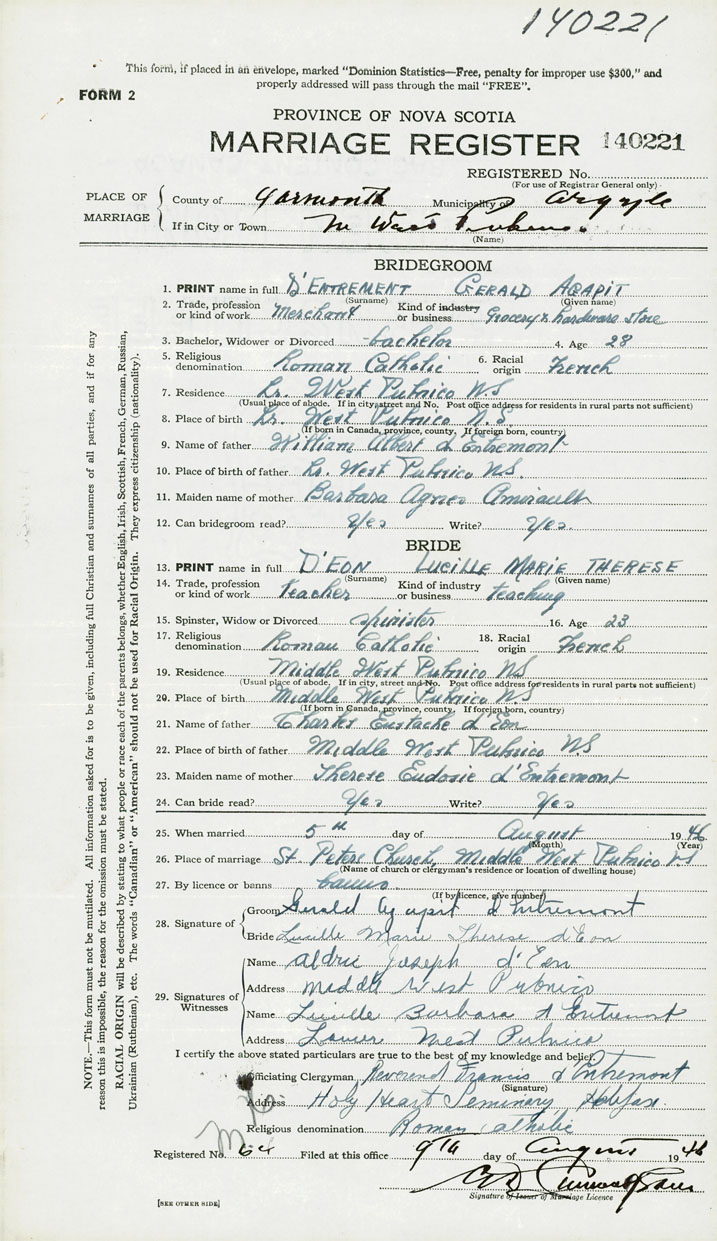 140221
This form, if placed in an envelope, marked "Dominion Statistics—Free, penalty for improper use $300," and
properly addressed will pass through the mail "FREE".
FORM 2
PROVINCE OF NOVA SCOTIA
MARRIAGE REGISTER 140221
REGISTERED No.
(For use of Registrar General only)
PLACE OF MARRIAGE
County of Yarmouth Municipality of Argyle
If in City or Town M West Pubnico
(Name)
BRIDEGROOM
1. PRINT name in full D'ENTREMENT GERALD AGAPIT
(Surname) (Given name)
2. Trade, profession or kind of work Merchant Kind of industry or business Grocery & hardware store
3. Bachelor, Widower or Divorced bachelor 4. Age 28
5. Religious denomination Roman Catholic 6. Racial origin French
7. Residence Lr. West Pubnico NS
(Usual place of abode. If in city, street and No. Post office address for residents in rural parts not sufficient)
8. Place of birth Lr. West Pubnico N.S.
(If born in Canada, province, county. If foreign born, country)
9. Name of father William Albert d'Entremont
10. Place of birth of father Lr. West Pubnico N.S.
11. Maiden name of mother Barbara Agnes Amirault
12. Can bridegroom read? Yes Write? Yes.
BRIDE
13. PRINT name in full D'EON LUCILLE MARIE THERESE
(Surname) (Given name)
14. Trade, profession or kind of work teacher Kind of industry or business teaching
15. Spinster, Widow or Divorced spinister 16. Age 23
17. Religious denomination Roman Catholic 18. Racial origin French
19. Residence Middle West Pubnico NS
(Usual place of abode. If in city, street and No. Post office address for residents in rural parts not sufficient)
20. Place of birth Middle West Pubnico N.S
(If born in Canada, province, county. If foreign born, country)
21. Name of father Charles Eustache d'Eon
22. Place of birth of father Middle West Pubnico N.S
23. Maiden name of mother Therese Eudosie d'Entremont
24. Can bride read? Yes Write? Yes
25. When married 5th day of August 1946
(Month) (Year)
26. Place of marriage St. Peters Church, Middle West Pubnico NS
(Name of church or clergyman's residence or location of dwelling house)
27. By licence or banns banns
(If by licence, give number)
28. Signature of
Groom Gerald Agapit d'Entremont
Bride Lucille Marie Therese d'Eon
29. Signatures of Witnesses
Name Aldric Joseph d'Eon
Address Middle West Pubnico
Name Lucille Barbara d'Entremont
Address Lower West Pubnico
I certify the above stated particulars are true to the best of my knowledge and belief.
Officiating Clergyman Reverend Francis d'Entremont
(Signature)
Address Holy Heart Seminary, Halifax.
Religious denomination Roman Catholic
Registered No. 64 Filed at this office 9th day of August 1946
Signature of Issuer of Marriage Licence
[SEE OTHER SIDE]
NOTE.—This form must not be mutilated. All information asked for is to be given, including full Christian and surnames of all parties, and if for any
reason this is impossible, the reason for the omission must be stated.
RACIAL ORIGIN will be described by stating to what people or race each of the parents belongs, whether English, Irish, Scottish, French, German, Russian,
Ukrainian (Ruthenian), etc. The words "Canadian" or "American" should not be used for Racial Origin. They express citizenship (nationality).